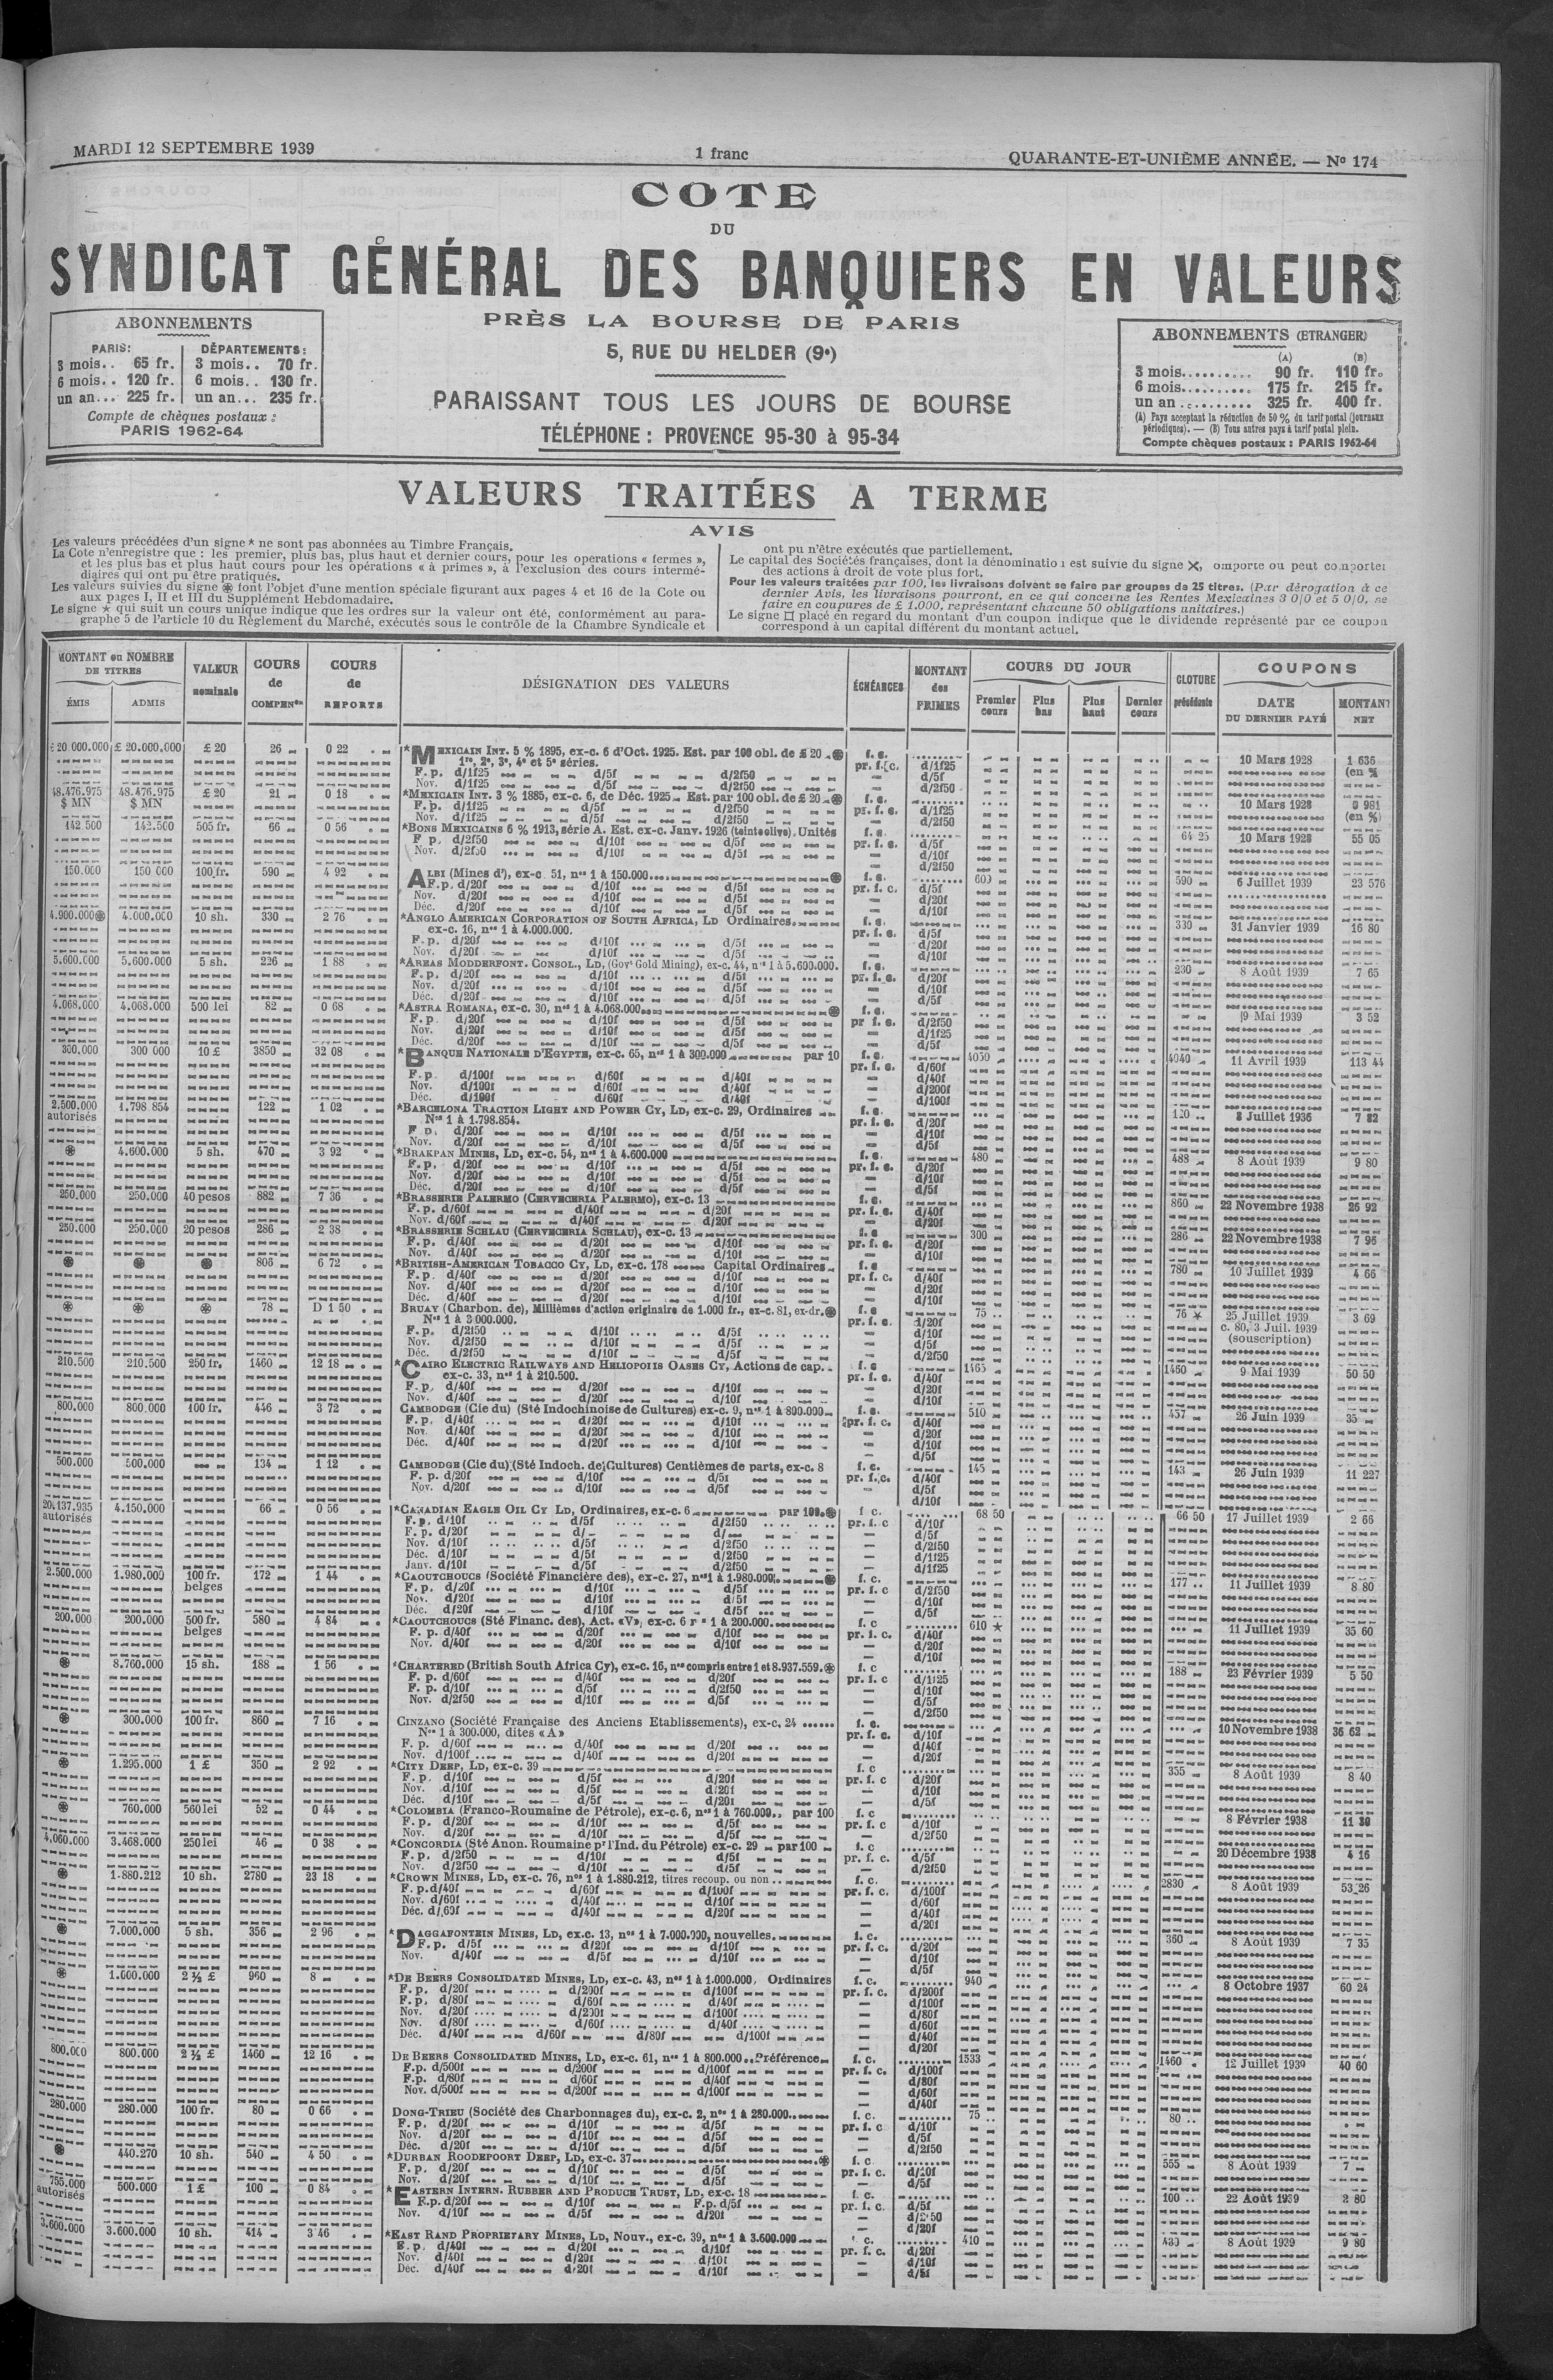 MARDI 12 SEPTEMBRE 1939
1 franc
QUARANTE-ET-UNIÈME ANNÉE. — No 174
COTE
DU
SYNDICAT GÉNÉRAL DES BANQUIERS EN VALEURS
PRÈS LA BOURSE DE PARIS
5, RUE DU HELDER (9e)
PARAISSANT TOUS LES JOURS DE BOURSE
TÉLÉPHONE : PROVENCE 95-30 à 95-34
ABONNEMENTS
PARIS: DÉPARTEMENTS:
3 mois.. 65 fr. 3 mois.. 70 fr.
6 mois.. 120 fr. 6 mois.. 130 fr.
un an... 225 fr. un an... 235 fr.
Compte de chèques postaux :
PARIS 1962-64
ABONNEMENTS (ETRANGER)
(A) (B)
3 mois.......... 90 fr. 110 fr.
6 mois.......... 175 fr. 215 fr.
un an .......... 325 fr. 400 fr.
(A) Pays acceptant la réduction de 50 % du tarif postal (journaux
périodiques). — (B) Tous autres pays à tarif postal plein.
Compte chèques postaux : PARIS 1962-64
VALEURS TRAITÉES A TERME
AVIS
Les valeurs précédées d'un signe * ne sont pas abonnées au Timbre Français.
La Cote n'enregistre que : les premier, plus bas, plus haut et dernier cours, pour les operations « fermes »,
et les plus bas et plus haut cours pour les opérations « à primes », à l'exclusion des cours intermé-
diaires qui ont pu être pratiqués.
Les valeurs suivies du signe ⊛ font l'objet d'une mention spéciale figurant aux pages 4 et 16 de la Cote ou
aux pages I, II et III du Supplément Hebdomadaire.
Le signe ★ qui suit un cours unique indique que les ordres sur la valeur ont été, conformément au para-
graphe 5 de l'article 10 du Règlement du Marché, exécutés sous le contrôle de la Chambre Syndicale et
ont pu n'être exécutés que partiellement.
Le capital des Sociétés françaises, dont la dénomination est suivie du signe ✕, omporte ou peut comporter
des actions à droit de vote plus fort.
Pour les valeurs traitées par 100, les livraisons doivent se faire par groupes de 25 titres. (Par dérogation à ce
dernier Avis, les livraisons pourront, en ce qui concerne les Rentes Mexicaines 3 0/0 et 5 0/0, se
faire en coupures de £ 1.000, représentant chacune 50 obligations unitaires.)
Le signe □ placé en regard du montant d'un coupon indique que le dividende représenté par ce coupon
correspond à un capital différent du montant actuel.
MONTANT ou NOMBRE DE TITRES
ÉMIS ADMIS
VALEUR nominale
COURS de COMPENon
COURS de REPORTS
DÉSIGNATION DES VALEURS
ÉCHÉANCES
MONTANT des PRIMES
COURS DU JOUR
Premier cours Plus bas Plus haut Dernier cours
CLOTURE précédente
COUPONS
DATE DU DERNIER PAYÉ MONTANT NET
£ 20 000.000 £ 20.000.000 £ 20 26 0 22 *MEXICAIN INT. 5 % 1895, ex-c. 6 d'Oct. 1925. Est. par 100 obl. de £ 20 ⊛ f. c. 10 Mars 1928 1 636
1re, 2e, 3e, 4e et 5e séries. pr. f. c. d/1f25 (en %
F. p. d/1f25 d/5f d/2f50 — d/5f
Nov. d/1f25 d/5f d/2f50 — d/2f50
48.476.975 48.476.975 £ 20 21 0 18 *MEXICAIN INT. 3 % 1885, ex-c. 6, de Déc. 1925. Est. par 100 obl. de £ 20 ⊛ f. c. 10 Mars 1928 0 981
$ MN $ MN F. p. d/1f25 d/5f d/2f50 pr. f. c. d/1f25 (en %)
Nov. d/1f25 d/5f d/2f50 — d/2f50
142 500 142.500 505 fr. 66 0 56 *BONS MEXICAINS 6 % 1913, série A. Est. ex-c. Janv. 1926 (teinte olive). Unités f. c. 64 25 10 Mars 1928 55 05
F p. d/2f50 d/10f d/5f pr. f. c. d/5f
Nov. d/2f50 d/10f d/5f — d/10f
— d/2f50
150.000 150 000 100 fr. 590 4 92 ALBI (Mines d'), ex-c. 51, nos 1 à 150.000 ⊛ f. c. 600 590 6 Juillet 1939 23 576
F. p. d/20f d/10f d/5f pr. f. c. d/5f
Nov. d/20f d/10f d/5f — d/20f
Déc. d/20f d/10f d/5f — d/10f
4.900.000⊛ 4.000.000 10 sh. 330 2 76 *ANGLO AMERICAN CORPORATION OF SOUTH AFRICA, LD Ordinaires. f. c. 330 31 Janvier 1939 16 80
ex-c. 16, nos 1 à 4.000.000. pr. f. c. d/5f
F. p. d/20f d/10f d/5f — d/20f
Nov. d/20f d/10f d/5f — d/10f
5.600.000 5.600.000 5 sh. 226 1 88 *AREAS MODDERFONT. CONSOL., LD, (Govt Gold Mining), ex-c. 44, nos 1 à 5.600.000. f. c. 230 8 Août 1939 7 65
F. p. d/20f d/10f d/5f pr. f. c. d/20f
Nov. d/20f d/10f d/5f — d/10f
Déc. d/20f d/10f d/5f — d/5f
4.068.000 4.068.000 500 lei 82 0 68 *ASTRA ROMANA, ex-c. 30, nos 1 à 4.068.000 ⊛ f. c. 9 Mai 1939 3 52
F. p. d/20f d/10f d/5f pr f. c. d/2f50
Nov. d/20f d/10f d/5f — d/1f25
Déc. d/20f d/10f d/5f — d/5f
300.000 300 000 10 £ 3850 32 08 *BANQUE NATIONALE D'EGYPTE, ex-c. 65, nos 1 à 300.000 par 10 f. c. 4050 4040 11 Avril 1939 113 44
pr. f. c. d/60f
F. p. d/100f d/60f d/40f — d/40f
Nov. d/100f d/60f d/40f — d/200f
Déc. d/100f d/60f d/40f — d/100f
2.500.000 1.798 854 122 1 02 *BARCELONA TRACTION LIGHT AND POWER CY, LD, ex-c. 29, Ordinaires f. c. 120 8 Juillet 1936 7 82
autorisés Nos 1 à 1.798.854. pr. f. c. d/20f
F p. d/20f d/10f d/5f — d/10f
Nov. d/20f d/10f d/5f — d/5f
⊛ 4.600.000 5 sh. 470 3 92 *BRAKPAN MINES, LD, ex-c. 54, nos 1 à 4.600.000 f. c. 480 488 8 Août 1939 9 80
F. p. d/20f d/10f d/5f pr. f. c. d/20f
Nov. d/20f d/10f d/5f — d/10f
Déc. d/20f d/10f d/5f — d/5f
250.000 250.000 40 pesos 882 7 36 *BRASSERIE PALERMO (CERVECERIA PALERMO), ex-c. 13 f. c. 860 22 Novembre 1938 26 92
F. p. d/60f d/40f d/20f pr. f. c. d/40f
Nov. d/60f d/40f d/20f — d/20f
250.000 250.000 20 pesos 286 2 38 *BRASSERIE SCHLAU (CERVECERIA SCHLAU), ex-c. 13 f. c 300 286 22 Novembre 1938 7 96
F. p. d/40f d/20f d/10f pr. f. c. d/20f
Nov. d/40f d/20f d/10f — d/10f
⊛ ⊛ ⊛ 806 6 72 *BRITISH-AMERICAN TOBACCO CY, LD, ex-c. 178 Capital Ordinaires f. c 780 10 Juillet 1939 4 66
F. p. d/40f d/20f d/10f pr. f. c. d/40f
Nov. d/40f d/20f d/10f — d/20f
Déc. d/40f d/20f d/10f — d/10f
⊛ ⊛ ⊛ 78 D 1 50 BRUAY (Charbon. de), Millièmes d'action originaire de 1.000 fr., ex-c. 81, ex-dr. ⊛ f. c 75 76 ★ 25 Juillet 1939 3 69
Nos 1 à 3 000.000. pr. f. c. d/20f c. 80, 3 Juil. 1939
F. p. d/2f50 d/10f d/5f — d/10f (souscription)
Nov. d/2f50 d/10f d/5f — d/5f
Déc. d/2f50 d/10f d/5f — d/2f50
210.500 210.500 250 fr. 1460 12 18 *CAIRO ELECTRIC RAILWAYS AND HELIOPOLIS OASES CY, Actions de cap. f. c 1465 1460 9 Mai 1939 50 50
ex-c. 33, nos 1 à 210.500. pr. f. c. d/40f
F. p. d/40f d/20f d/10f — d/20f
Nov. d/40f d/20f d/10f — d/10f
800.000 800.000 100 fr. 446 3 72 CAMBODGE (Cie du) (Sté Indochinoise de Cultures) ex-c. 9, nos 1 à 800.000 f. c. 510 457 26 Juin 1939 35
F. p. d/40f d/20f d/10f pr. f. c. d/40f
Nov. d/40f d/20f d/10f — d/20f
Déc. d/40f d/20f d/10f — d/10f
— d/5f
500.000 500.000 134 1 12 CAMBODGE (Cie du) (Sté Indoch. de Cultures) Centièmes de parts, ex-c. 8 f. c. 145 143 26 Juin 1939 11 227
F. p. d/20f d/10f d/5f pr. f. c. d/40f
Nov. d/20f d/10f d/5f — d/5f
— d/10f
20.137.935 4.150.000 66 0 56 *CANADIAN EAGLE OIL CY LD, Ordinaires, ex-c. 6 par 100 ⊛ f c. 68 50 66 50 17 Juillet 1939 2 66
autorisés F. p. d/10f d/5f d/2f50 pr. f. c d/10f
F. p. d/20f d/ d/ — d/5f
Nov. d/10f d/5f d/2f50 — d/2f50
Déc. d/10f d/5f d/2f50 — d/1f25
Janv. d/10f d/5f d/2f50 — d/1f25
2.500.000 1.980.000 100 fr. 172 1 44 *CAOUTCHOUCS (Société Financière des), ex-c. 27, nos 1 à 1.980.000 ⊛ f. c. 177 11 Juillet 1939 8 80
belges F. p. d/20f d/10f d/5f pr. f. c d/2f50
Nov. d/20f d/10f d/5f — d/10f
Déc. d/20f d/10f d/5f — d/5f
200.000 200.000 500 fr. 580 4 84 *CAOUTCHOUCS (Sté Financ. des), Act. «V», ex-c. 6 1 à 200.000 f. c 610 ★ 11 Juillet 1939 35 60
belges F. p. d/40f d/20f d/10f pr. f. c. d/40f
Nov. d/40f d/20f d/10f — d/20f
— d/10f
⊛ 8.760.000 15 sh. 188 1 56 *CHARTERED (British South Africa Cy), ex-c. 16, nos compris entre 1 et 8.937.559. ⊛ f. c 188 23 Février 1939 5 50
F. p. d/60f d/40f d/20f pr. f. c d/1f25
F. p. d/10f d/5f d/2f50 — d/10f
Nov. d/2f50 d/10f d/5f — d/5f
— d/2f50
⊛ 300.000 100 fr. 860 7 16 CINZANO (Société Française des Anciens Etablissements), ex-c. 24 f. c. 10 Novembre 1938 36 62
Nos 1 à 300.000, dites «A» pr. f. c. d/10f
F. p. d/60f d/40f d/20f — d/40f
Nov. d/100f d/40f d/20f — d/20f
⊛ 1.295.000 1 £ 350 2 92 *CITY DEEP, LD, ex-c. 39 f. c 355 8 Août 1939 8 40
F. p. d/10f d/5f d/20f pr. f. c d/20f
Nov. d/10f d/5f d/20f — d/10f
Déc. d/10f d/5f d/20f — d/5f
⊛ 760.000 560 lei 52 0 44 *COLOMBIA (Franco-Roumaine de Pétrole), ex-c. 6, nos 1 à 760.000 par 100 f. c 8 Février 1938 11 30
F. p. d/20f d/10f d/5f pr. f. c d/10f
Nov. d/20f d/10f d/5f — d/2f50
4,060.000 3.468.000 250 lei 46 0 38 *CONCORDIA (Sté Anon. Roumaine pr l'Ind. du Pétrole) ex-c. 29 par 100 f. c 20 Décembre 1938 4 16
F. p. d/2f50 d/10f d/5f pr. f. c. d/5f
Nov. d/2f50 d/10f d/5f — d/2f50
⊛ 1.880.212 10 sh. 2780 23 18 *CROWN MINES, LD, ex-c. 76, nos 1 à 1.880.212, titres recoup. ou non f. c. 2830 8 Août 1939 53 26
F. p. d/40f d/60f d/100f pr. f. c. d/100f
Nov. d/60f d/40f d/10f — d/60f
Déc. d/60f d/40f d/20f — d/40f
— d/20f
⊛ 7.000.000 5 sh. 356 2 96 *DAGGAFONTEIN MINES, LD, ex.c. 13, nos 1 à 7.000.000, nouvelles. f. c. 360 8 Août 1939 7 35
F. p. d/5f d/20f d/10f pr. f. c. d/20f
Nov. d/40f d/5f d/10f — d/10f
— d/5f
⊛ 1.000.000 2 ½ £ 960 8 *DE BEERS CONSOLIDATED MINES, LD, ex-c. 43, nos 1 à 1.000.000, Ordinaires f. c. 940 8 Octobre 1937 60 24
F. p. d/20f d/200f d/100f pr. f. c. d/200f
F. p. d/80f d/60f d/40f — d/100f
Nov. d/20f d/200f d/100f — d/80f
Nov. d/80f d/60f d/40f — d/60f
Déc. d/40f d/60f d/80f d/100f — d/40f
— d/20f
800.000 800.000 2 ½ £ 1460 12 16 DE BEERS CONSOLIDATED MINES, LD, ex-c. 61, nos 1 à 800.000. Préférence f. c. 1533 1460 12 Juillet 1939 40 60
F. p. d/500f d/200f d/100f pr. f. c. d/100f
F. p. d/80f d/60f d/40f — d/80f
Nov. d/500f d/200f d/100f — d/60f
— d/40f
280.000 280.000 100 fr. 80 0 66 DONG-TRIEU (Société des Charbonnages du), ex-c. 2, nos 1 à 280.000 f. c. 75 80
F. p. d/20f d/10f d/5f pr. f. c d/10f
Nov. d/20f d/10f d/5f — d/5f
Déc. d/20f d/10f d/5f — d/2f50
⊛ 440.270 10 sh. 540 4 50 *DURBAN ROODEPOORT DEEP, LD, ex-c. 37 ⊛ f. c 555 8 Août 1939 7
F. p. d/20f d/10f d/5f pr. f. c. d/10f
Nov. d/20f d/10f d/5f — d/5f
755.000 500.000 1 £ 100 0 84 *EASTERN INTERN. RUBBER AND PRODUCE TRUST, LD, ex-c. 18 f. c. 100 22 Août 1939 2 80
autorisés F. p. d/20f d/10f F. p. d/5f pr. f. c. d/5f
Nov. d/10f d/5f d/20f — d/2f50
— d/20f
3.600.000 3.600.000 10 sh. 414 3 46 *EAST RAND PROPRIETARY MINES, LD, Nouv., ex-c. 39, nos 1 à 3.600.000 c. 410 430 8 Août 1939 9 80
F. p. d/40f d/20f d/10f pr. f. c. d/20f
Nov. d/40f d/20f d/10f — d/10f
Déc. d/40f d/20f d/10f — d/5f